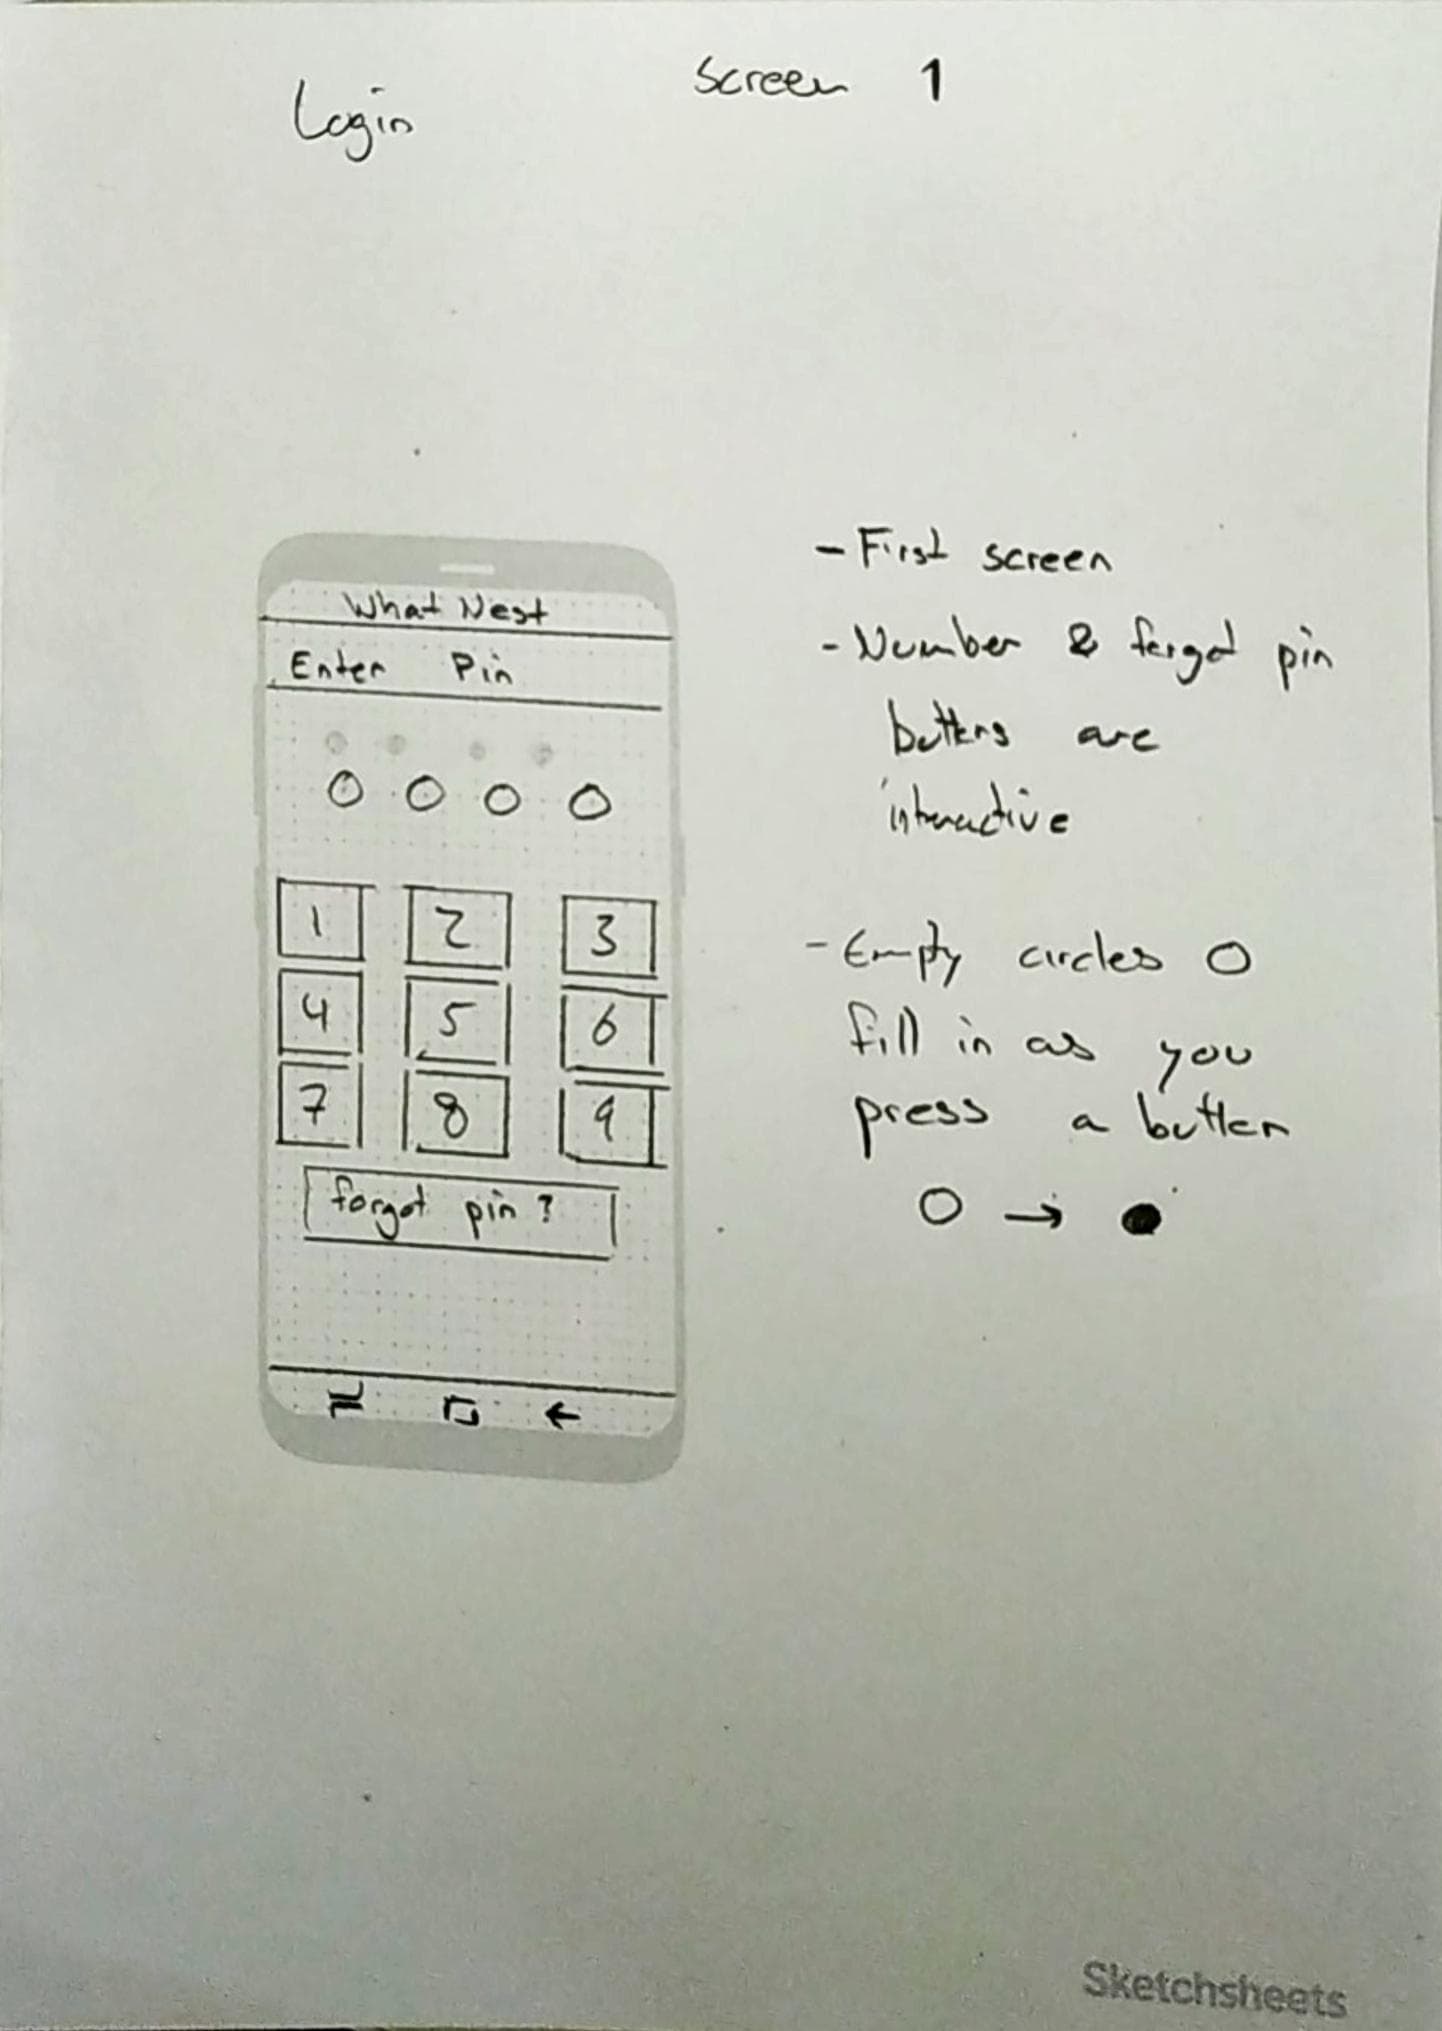 Login
Screen 1
What Nest
Enter Pin
1 2 3
4 5 6
7 8 9
forgot pin?
- First screen
- Number & forgot pin
buttons are
interactive
- Empty circles O
fill in as you
press a button
O → ●
Sketchsheets